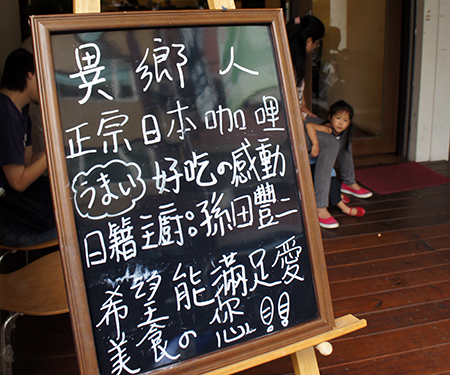 異鄉人
正宗日本咖哩
うまい 好吃の感動
日籍主廚:孫田豐二
希望能滿足愛
美食の您!!